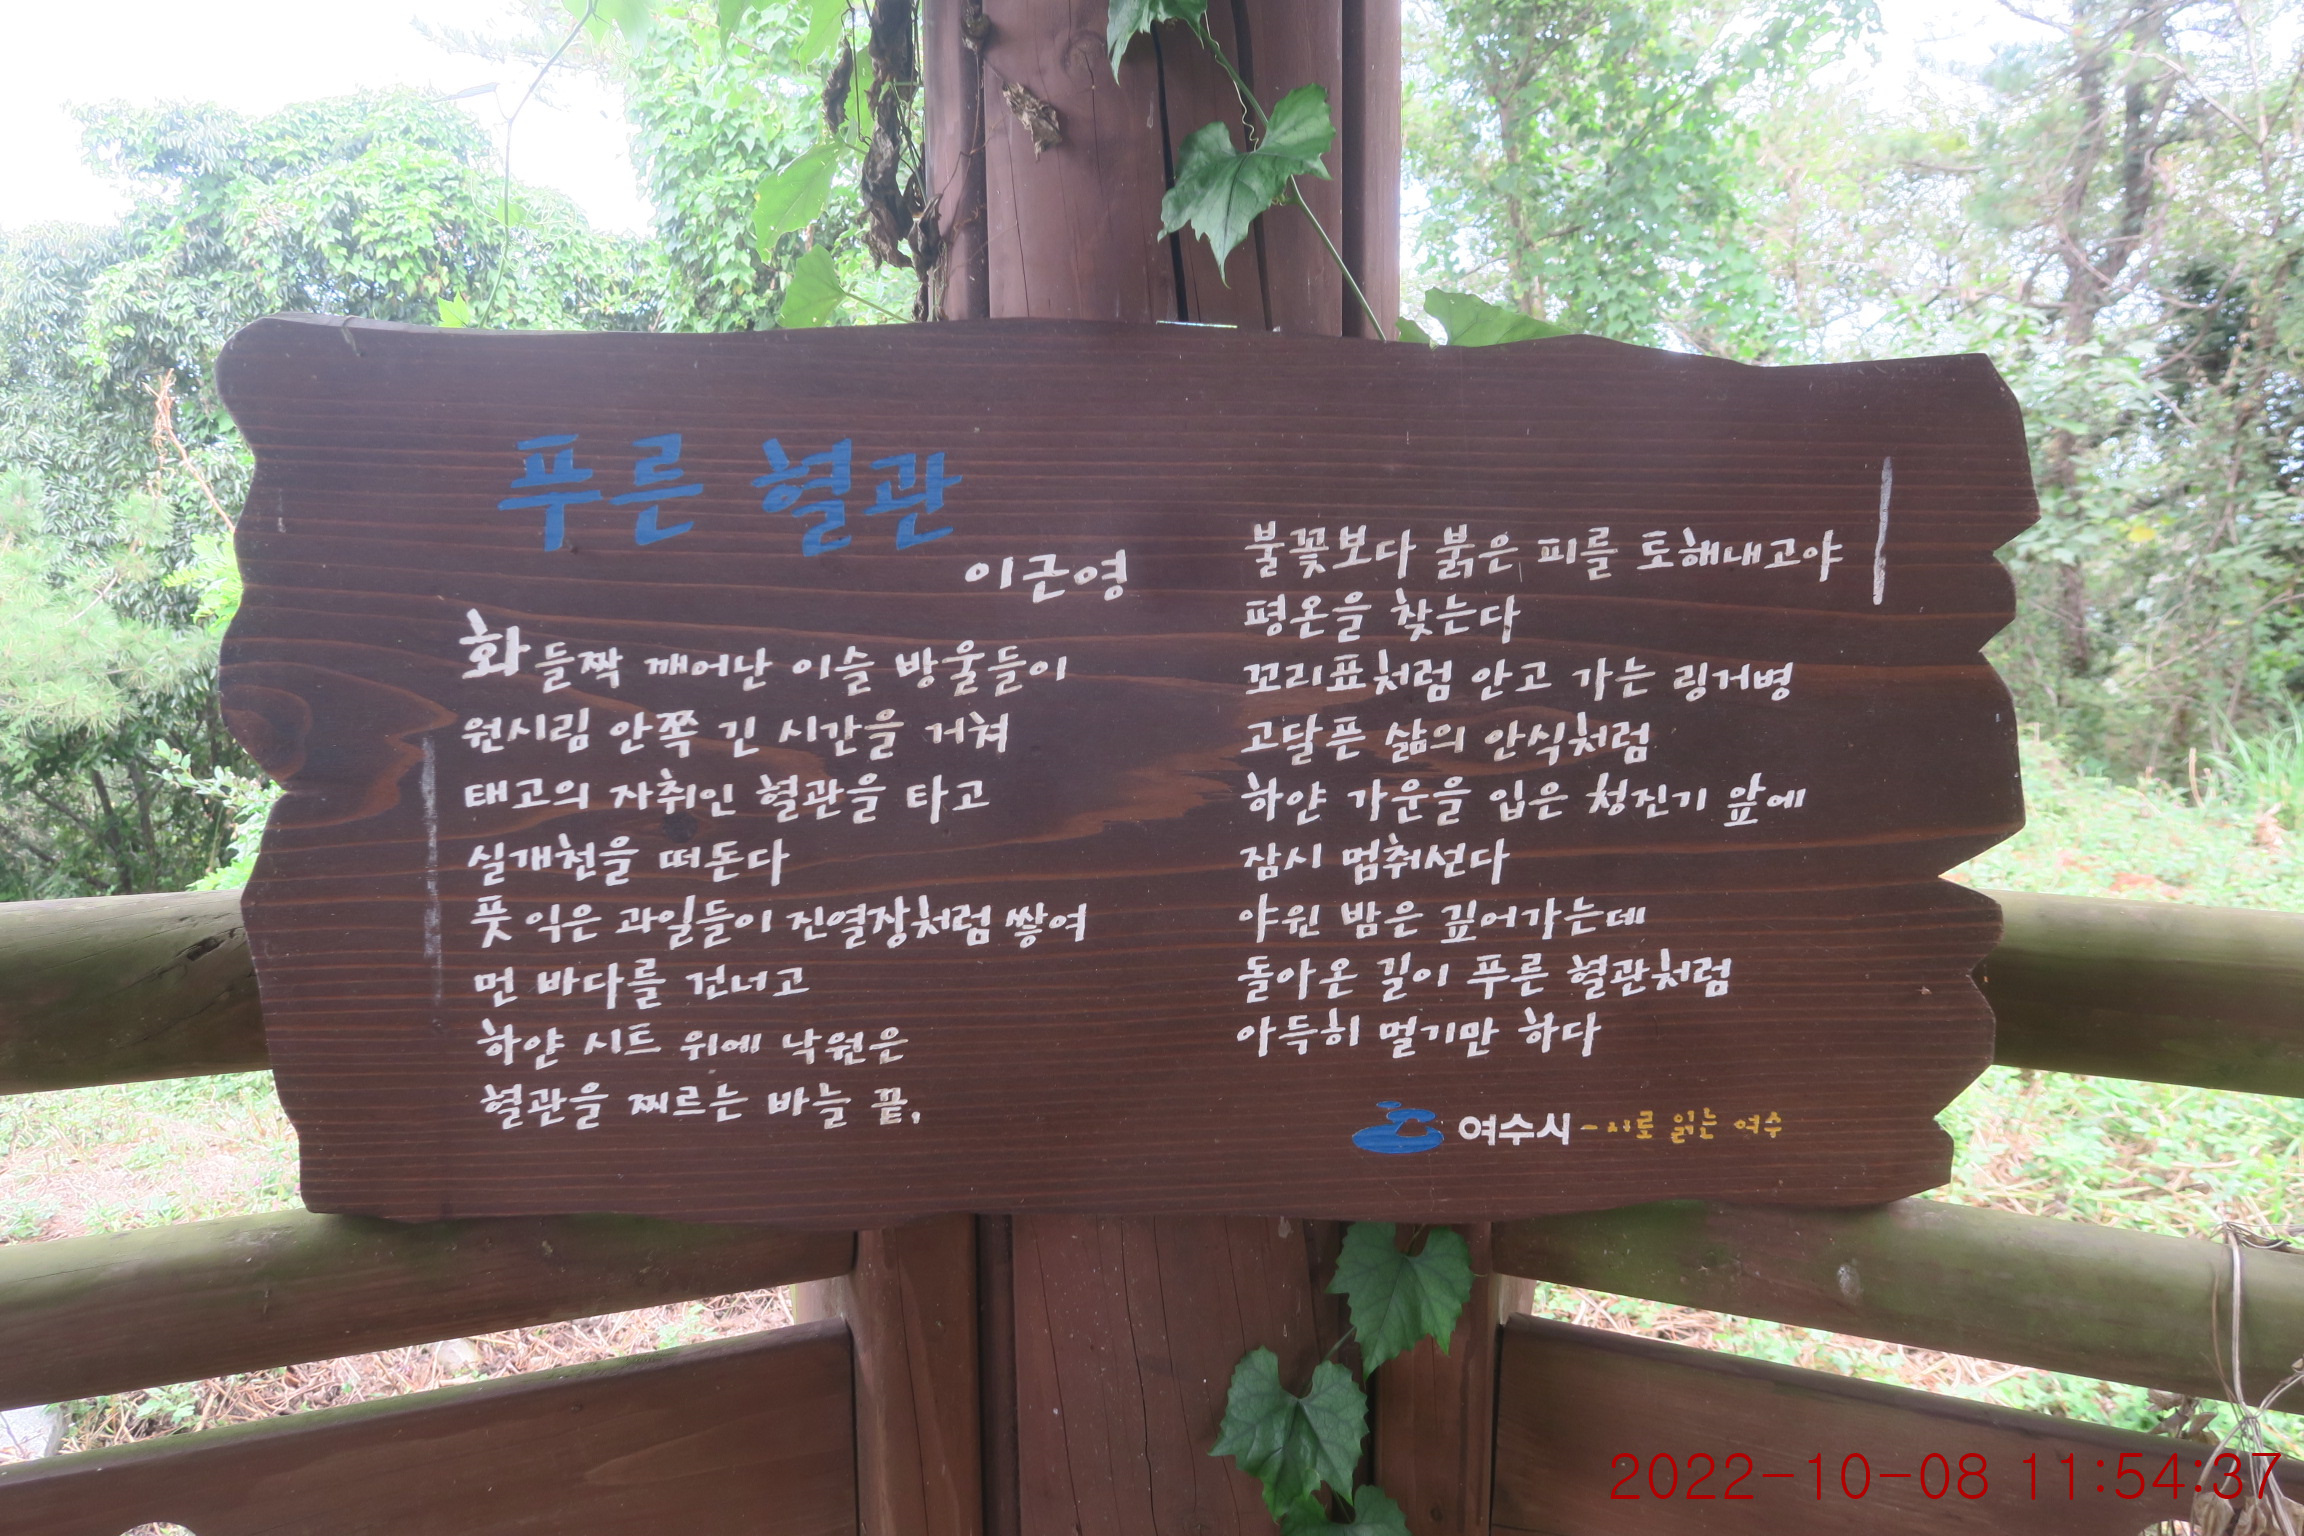 푸른 혈관
이근영
화들짝 깨어난 이슬 방울들이
원시림 안쪽 긴 시간을 거쳐
태고의 자취인 혈관을 타고
실개천을 떠돈다
풋 익은 과일들이 진열장처럼 쌓여
먼 바다를 건너고
하얀 시트 위에 낙원은
혈관을 찌르는 바늘 끝,
불꽃보다 붉은 피를 토해내고야
평온을 찾는다
꼬리표처럼 안고 가는 링거병
고달픈 삶의 안식처럼
하얀 가운을 입은 청진기 앞에
잠시 멈춰선다
야윈 밤은 깊어가는데
돌아온 길이 푸른 혈관처럼
아득히 멀기만 하다
여수시 - 시로 읽는 여수
2022-10-08 11:54:37